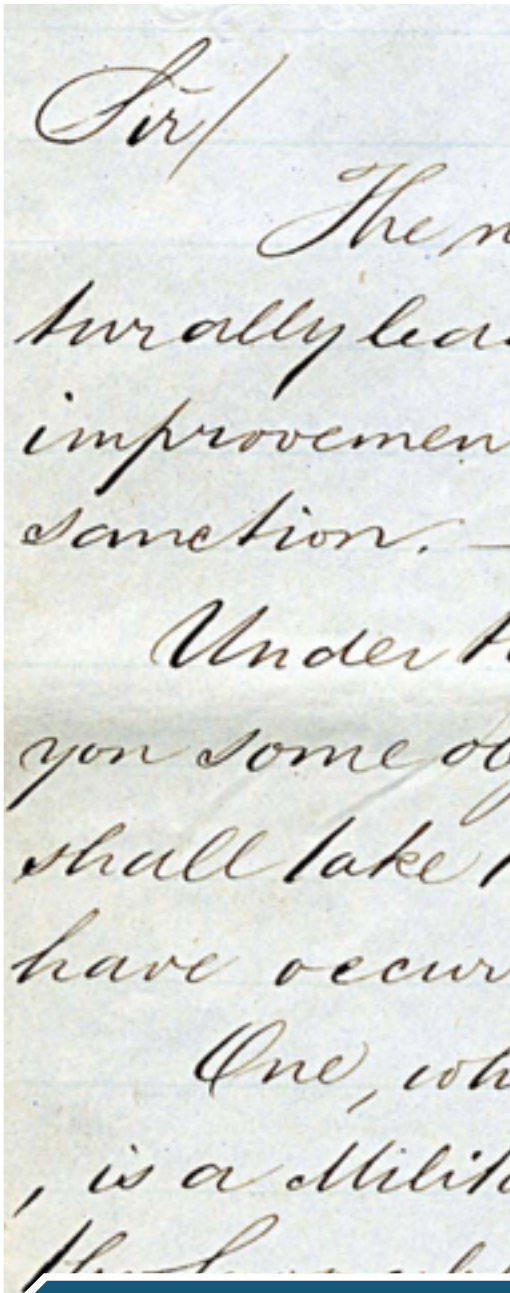 Sir/
The n
turally lea
improvemen
sanction. —
Under t
you some ob
shall take
have occur
One, wh
, is a Milit